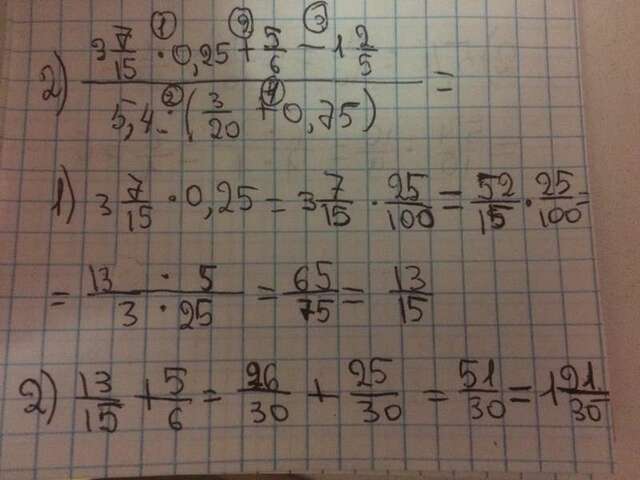 ① ② ③
2) 3 7/15 · 0,25 + 5/6 − 1 2/5
④
5,4 : (3/20 + 0,75) =
1) 3 7/15 · 0,25 = 3 7/15 · 25/100 = 52/15 · 25/100 =
= 13 · 5/3 · 25 = 65/75 = 13/15
2) 13/15 + 5/6 = 26/30 + 25/30 = 51/30 = 1 21/30